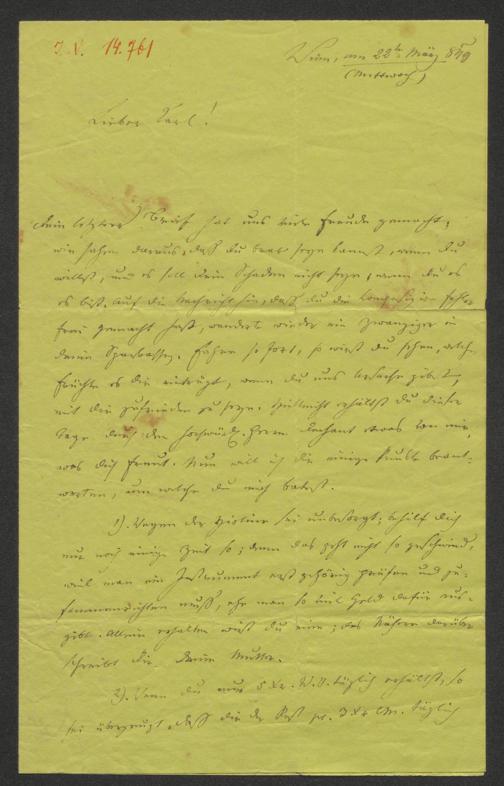 I. N. 14.761
Wien, am 22t März 849
(Mittwoch)
Lieber Carl!
Dein letzterer Brief hat uns viele Freude gemacht;
wir sahen daraus, daß du brav seyn kannst, wenn du
willst, und es soll dein Schaden nicht seyn, wenn du es
es bist. Auf die Nachricht hin, daß du die Composition fehler
frei gemacht hast, wandert wieder ein Zwanziger in
deine Sparkasse. Fahre so fort, so wirst du sehen, welche
Früchte es dir einträgt, wenn du uns Ursache gibst,
mit dir zufrieden zu seyn. Vielleicht erhältst du dieser
Tage durch den hochwürd. Herrn Dechant etwas von mir,
was dich freut. Nun will ich dir einige Punkte beant-
worten, um welche du mich batest.
1). Wegen der Violine sei unbesorgt; behilf dich
nur noch einige Zeit so; denn das geht nicht so geschwind,
weil man ein Instrument erst gehörig prüfen und zu-
sammenrichten muß, ehe man so viel Geld dafür aus-
gibt. Allein erhalten wirst du eine; das Nähere darüber
schreibt dir deine Mutter.
2). Wenn du nur 5 Xr. W.W. täglich erhältst, so
sei überzeugt, daß dir der Rest pr. 3 Xr CM. täglich